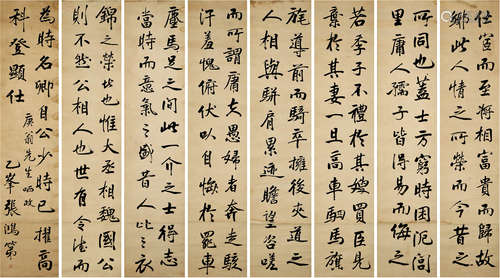 仕宦而至將相富貴而歸故
鄉此人情之所榮而今昔之
所同也蓋士方窮時困阨閭
里庸人孺子皆得易而侮之
若季子不禮於其嫂買臣見
棄於其妻一旦高車駟馬旗
旄導前而騎卒擁後夾道之
人相與駢肩累迹瞻望咨嗟
而所謂庸夫愚婦者奔走駭
汗羞愧俯伏以自悔於罪車
塵馬足之間此一介之士得志
當時而意氣之盛昔人比之衣
錦之榮者也惟大丞相魏國公
則不然公相人也世有令德而
為時名卿自公少時已擢高
科登顯仕
庚翁先生哂政
乙峯張鴻第